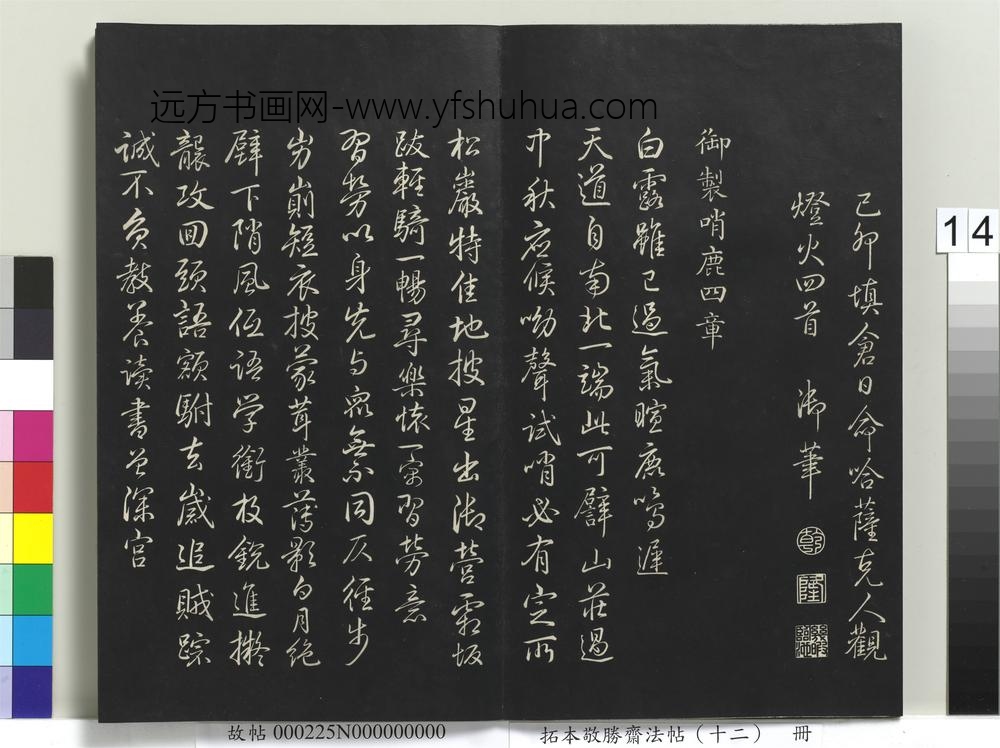 远方书画网-www.yfshuhua.com
己卯填倉日命哈薩克人觀
燈火四首 御筆
乾
隆
御製哨鹿四章
白露雖已過氣暄鹿鳴遲
天道自南北一端此可譬山莊過
中秋应候呦聲試哨必有定所
松巖特佳地披星出御营霜坂
跋輕騎一暢尋樂懷一寓習勞意
習勞以身先与衆無同仄徑步
岃崱短衣披蒙茸叢薄影白月絶
壁下陗風伍语学銜枚銳進擬
襲攻回頭語額駙去歲追賊踪
誠不負教养读書曾深宫
14
故帖 000225N000000000
拓本敬勝齋法帖（十二） 冊